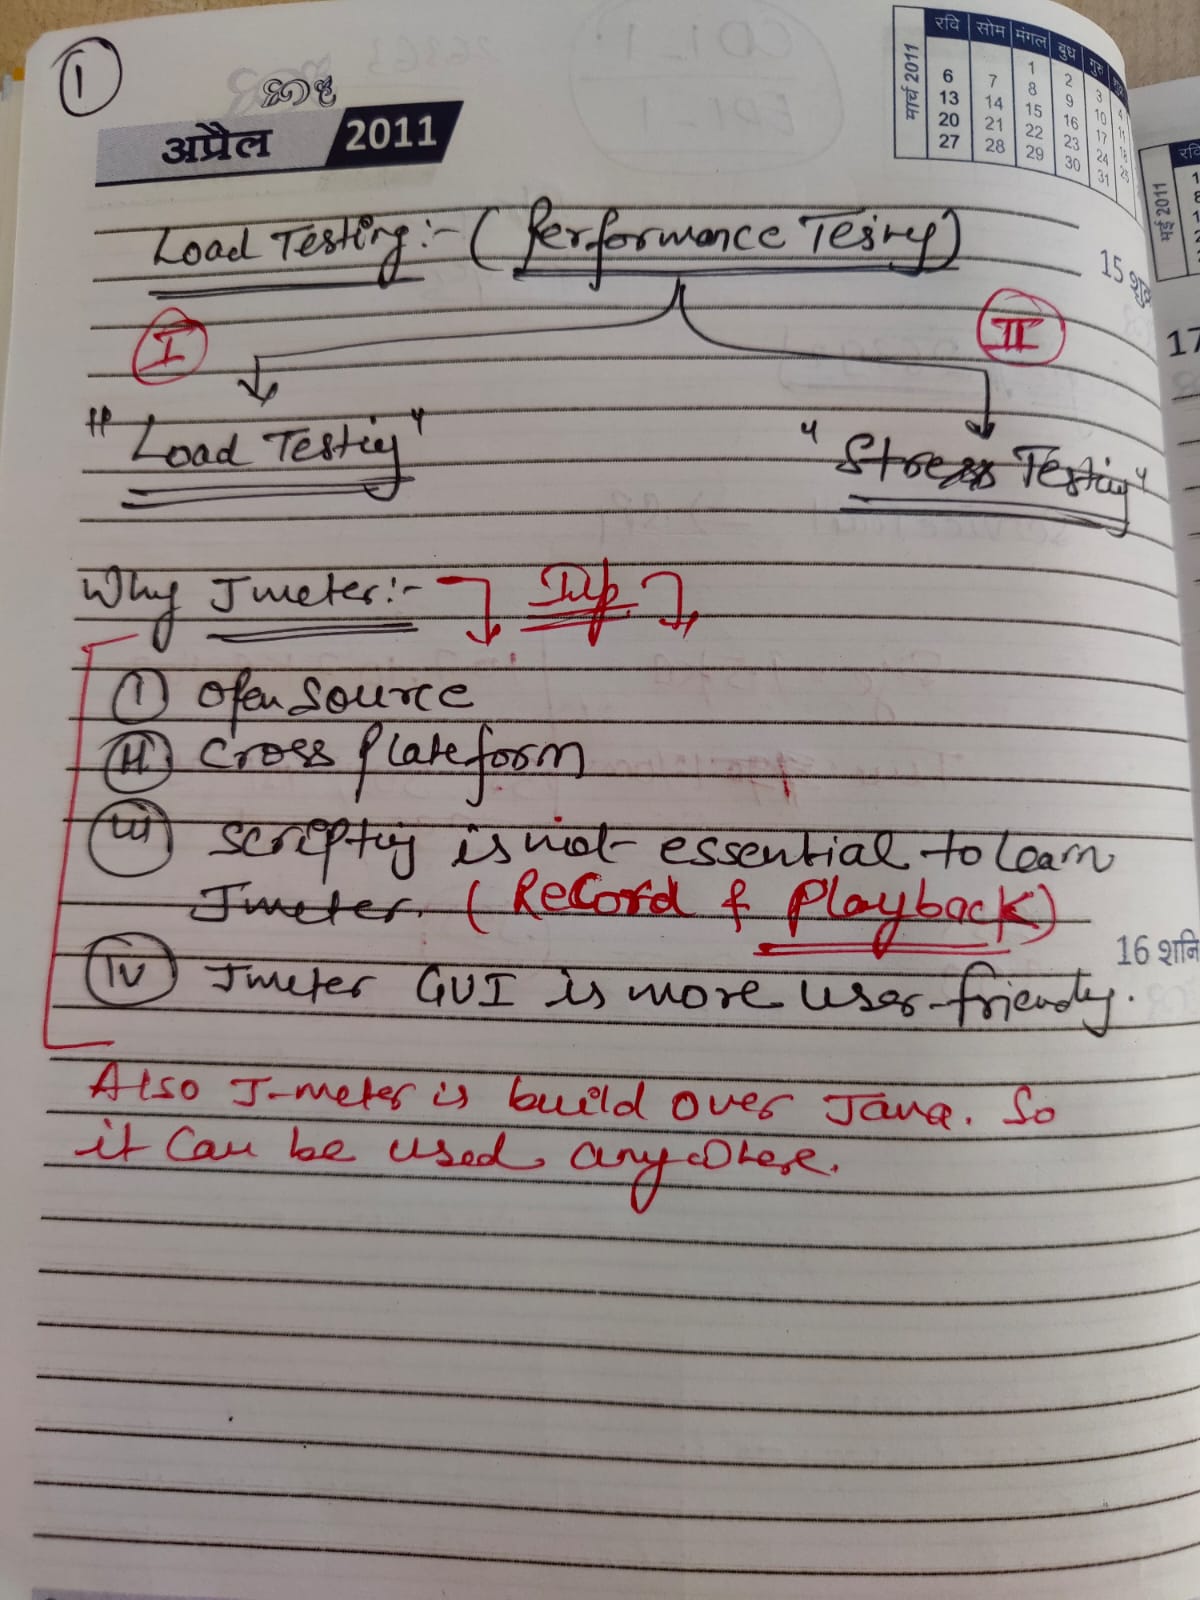 1
अप्रैल 2011
मार्च 2011
रवि सोम मंगल बुध गुरु
1 2 3 4
6 7 8 9 10 11
13 14 15 16 17 18
20 21 22 23 24 25
27 28 29 30 31
मई 2011
रवि
Load Testing :- (Performance Testing)
15
I II
17
"Load Testing" "Stress Testing"
Why Jmeter :- Imp
I Open Source
II Cross Plateform
III Scripting is not essential to learn
Jmeter. (Record & Playback)
16 शनि
IV Jmeter GUI is more user-friendly.
Also J-meter is build over Java. So
it Can be used anywhere.